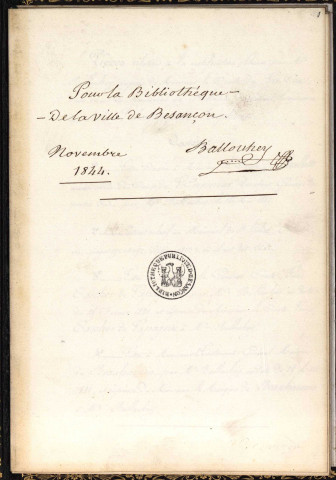 1
Pour la Bibliothéque
De la ville de Besançon.
Novembre
1844.
Ballouhey
BIBLIOTHÈQUE PUBLIQUE DE BESANÇON